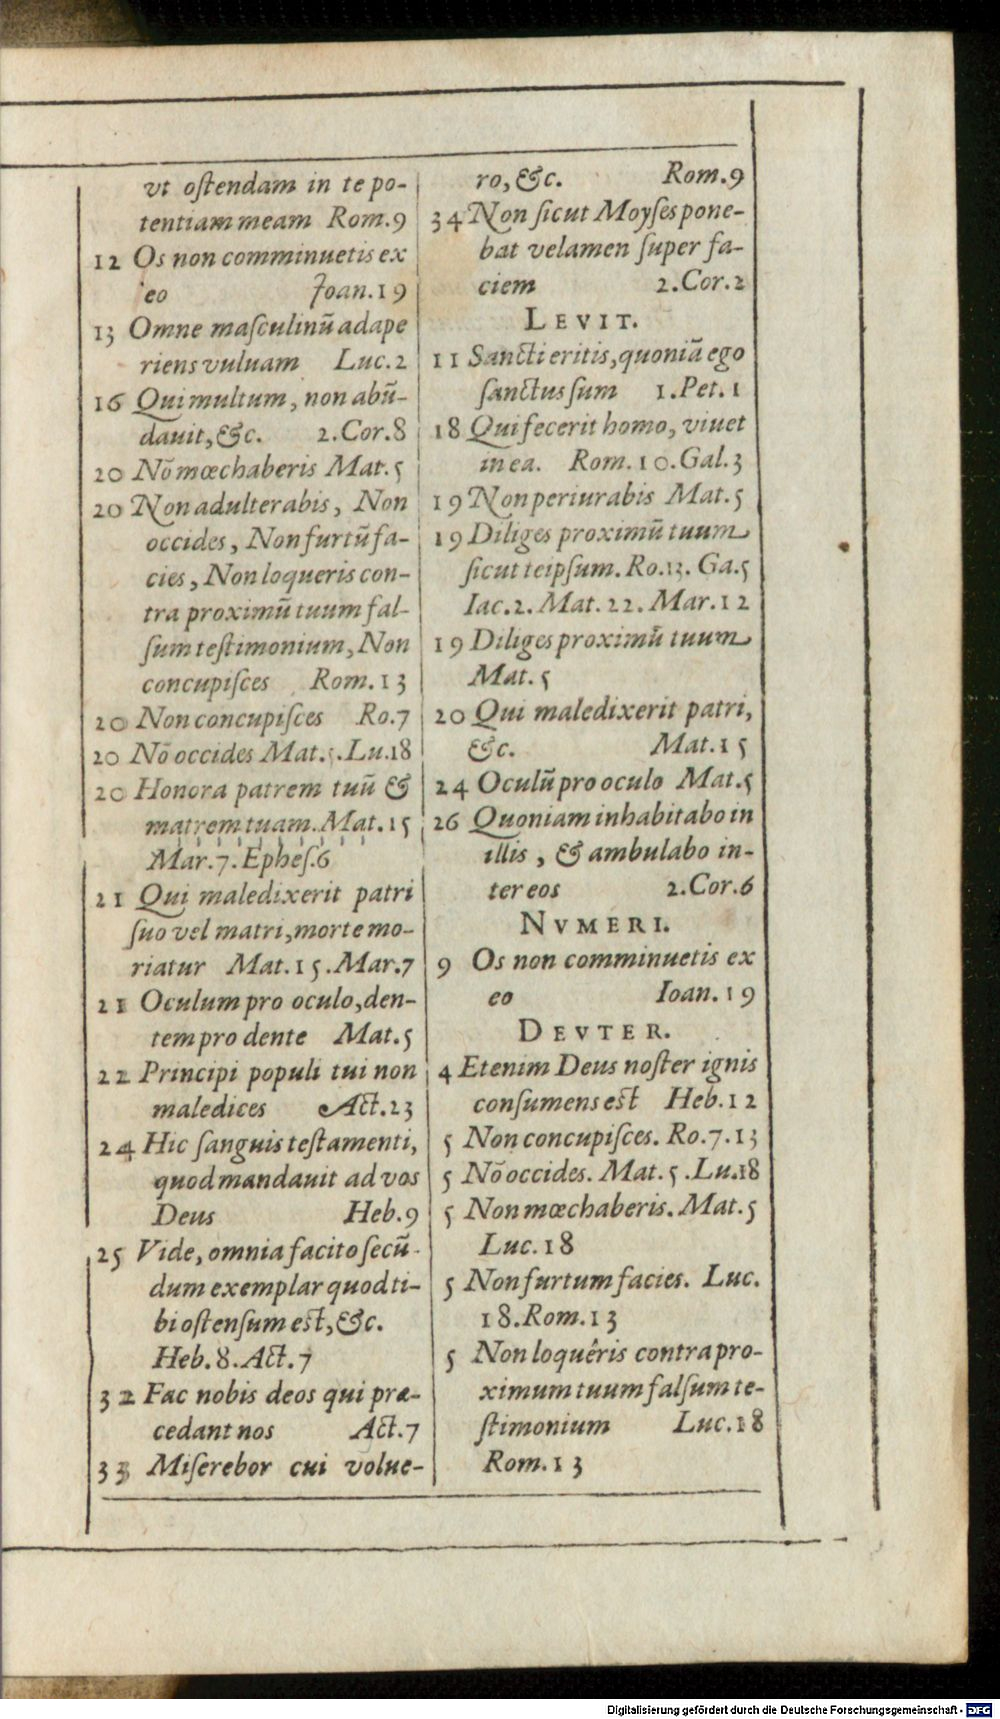 vt oſtendam in te po-
tentiam meam Rom.9
12 Os non comminuetis ex
eo Joan.19
13 Omne maſculinũ adape
riens vuluam Luc.2
16 Qui multum, non abũ-
dauit, &c. 2.Cor.8
20 Nõ mœchaberis Mat.5
20 Non adulterabis, Non
occides, Non furtũ fa-
cies, Non loqueris con-
tra proximũ tuum fal-
ſum teſtimonium, Non
concupiſces Rom.13
20 Non concupiſces Ro.7
20 Nõ occides Mat.5.Lu.18
20 Honora patrem tuũ &
matrem tuam. Mat.15
Mar.7. Epheſ.6
21 Qui maledixerit patri
ſuo vel matri, morte mo-
riatur Mat.15.Mar.7
21 Oculum pro oculo, den-
tem pro dente Mat.5
22 Principi populi tui non
maledices Act.23
24 Hic ſanguis teſtamenti,
quod mandauit ad vos
Deus Heb.9
25 Vide, omnia facito ſecũ-
dum exemplar quod ti-
bi oſtenſum eſt, &c.
Heb.8.Act.7
32 Fac nobis deos qui præ-
cedant nos Act.7
33 Miſerebor cui volue-
ro, &c. Rom.9
34 Non ſicut Moyſes pone-
bat velamen ſuper fa-
ciem 2.Cor.2
LEVIT.
11 Sancti eritis, quoniã ego
ſanctus ſum 1.Pet.1
18 Qui fecerit homo, viuet
in ea. Rom.10.Gal.3
19 Non periurabis Mat.5
19 Diliges proximũ tuum
ſicut teipſum. Ro.13. Ga.5
Iac.2. Mat.22. Mar.12
19 Diliges proximũ tuum
Mat.5
20 Qui maledixerit patri,
&c. Mat.15
24 Oculũ pro oculo Mat.5
26 Quoniam inhabitabo in
illis, & ambulabo in-
ter eos 2.Cor.6
NVMERI.
9 Os non comminuetis ex
eo Ioan.19
DEVTER.
4 Etenim Deus noſter ignis
conſumens eſt Heb.12
5 Non concupiſces. Ro.7.13
5 Nõ occides. Mat.5.Lu.18
5 Non mœchaberis. Mat.5
Luc.18
5 Non furtum facies. Luc.
18.Rom.13
5 Non loquêris contra pro-
ximum tuum falſum te-
ſtimonium Luc.18
Rom.13
Digitalisierung gefördert durch die Deutsche Forschungsgemeinschaft - DFG